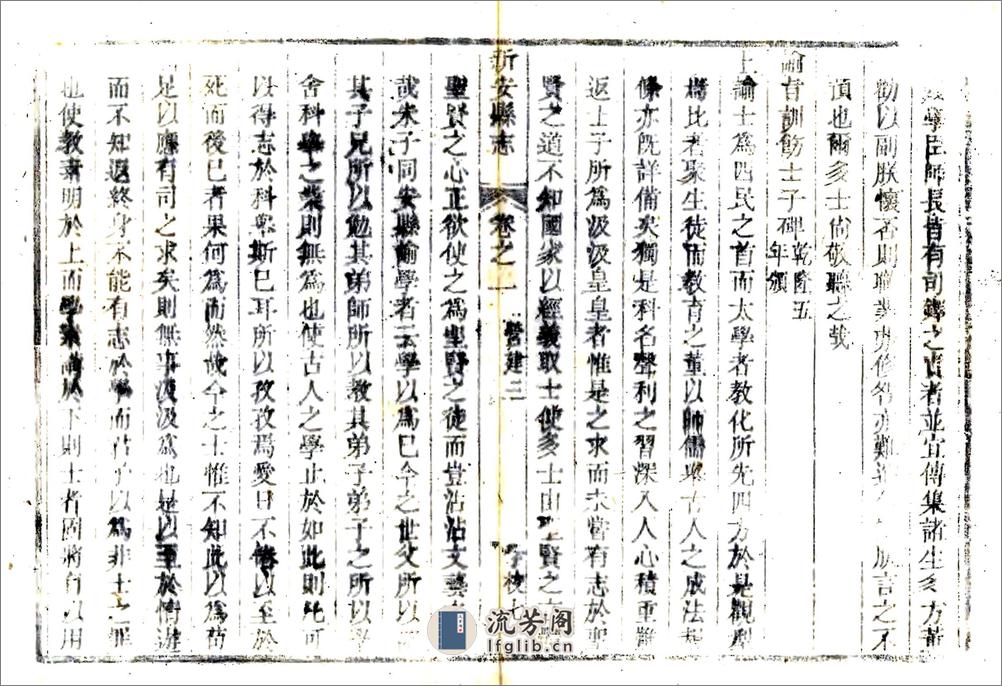 學臣師長皆有司鐸之責者並宜傳集諸生多方董
勸以副朕懷否則職業弗修咎亦難逃 朕言之不
預也爾多士尚敬聽之哉
諭旨訓飭士子碑乾隆五年頒
上諭士為四民之首而太學者教化所先四方於是觀型
焉比者聚生徒而教育之董以師儒舉古人之成法規
條亦既詳備矣獨是科名聲利之習深入人心積重難
返士子所為汲汲皇皇者惟是之求而未嘗有志於聖
賢之道不知國家以經義取士使多士由聖賢之
新安縣志
卷之一
營建三
學校七
聖賢之心正欲使之為聖賢之徒而豈沾沾文藝
哉朱子同安縣諭學者云學以為己今之世父所以
其子兄所以勉其弟師所以教其弟子弟子之所以學
舍科舉之業則無為也使古人之學止於如此則凡可
以得志於科舉斯已耳所以孜孜焉愛日不倦以至於
死而後已者果何為而然哉今之士惟不知此以為苟
足以應有司之求矣則無事汲汲為也是以至於惰遊
而不知返終身不能有志於學而君子以為非士之罪
也使教素明於上而學素講於下則士者固將有以用
流芳阁
lfglib.cn